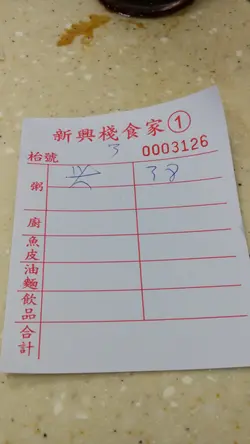 新興棧食家①
枱號 3 0003126
粥 38
廚
魚皮
油麵
飲品
合計